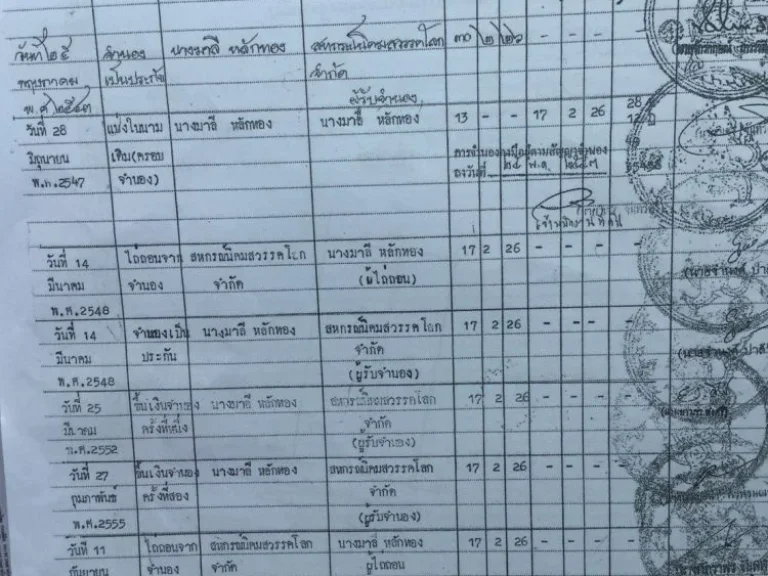 วันที่ ๒๕ จำนอง นางมาลี หลักทอง สหกรณ์นิคมสวรรคโลก ๓๐ ๒ ๒๖ - - -
พฤษภาคม เป็นประกัน จำกัด
พ.ศ. ๒๕๔๓ ผู้รับจำนอง
วันที่ 28 แบ่งในนาม นางมาลี หลักทอง นางมาลี หลักทอง 13 - - 17 2 26 28
มิถุนายน เดิม(ครอบ การจำนองคงมีอยู่ตามสัญญาจำนอง
พ.ศ.2547 จำนอง) ลงวันที่ ๒๕ พ.ค. ๒๕๔๓
เจ้าพนักงานที่ดิน
วันที่ 14 ไถ่ถอนจาก สหกรณ์นิคมสวรรคโลก นางมาลี หลักทอง 17 2 26 - - -
มีนาคม จำนอง จำกัด (ผู้ไถ่ถอน)
พ.ศ.2548
วันที่ 14 จำนองเป็น นางมาลี หลักทอง สหกรณ์นิคมสวรรคโลก 17 2 26 - - -
มีนาคม ประกัน จำกัด
พ.ศ.2548 (ผู้รับจำนอง)
วันที่ 25 ขึ้นเงินจำนอง นางมาลี หลักทอง สหกรณ์นิคมสวรรคโลก 17 2 26 - - -
มีนาคม ครั้งที่หนึ่ง จำกัด
พ.ศ.2552 (ผู้รับจำนอง)
วันที่ 27 ขึ้นเงินจำนอง นางมาลี หลักทอง สหกรณ์นิคมสวรรคโลก 17 2 26 - - -
กุมภาพันธ์ ครั้งที่สอง จำกัด
พ.ศ.2555 (ผู้รับจำนอง)
วันที่ 11 ไถ่ถอนจาก สหกรณ์นิคมสวรรคโลก นางมาลี หลักทอง 17 2 26 - - -
กันยายน จำนอง จำกัด ผู้ไถ่ถอน